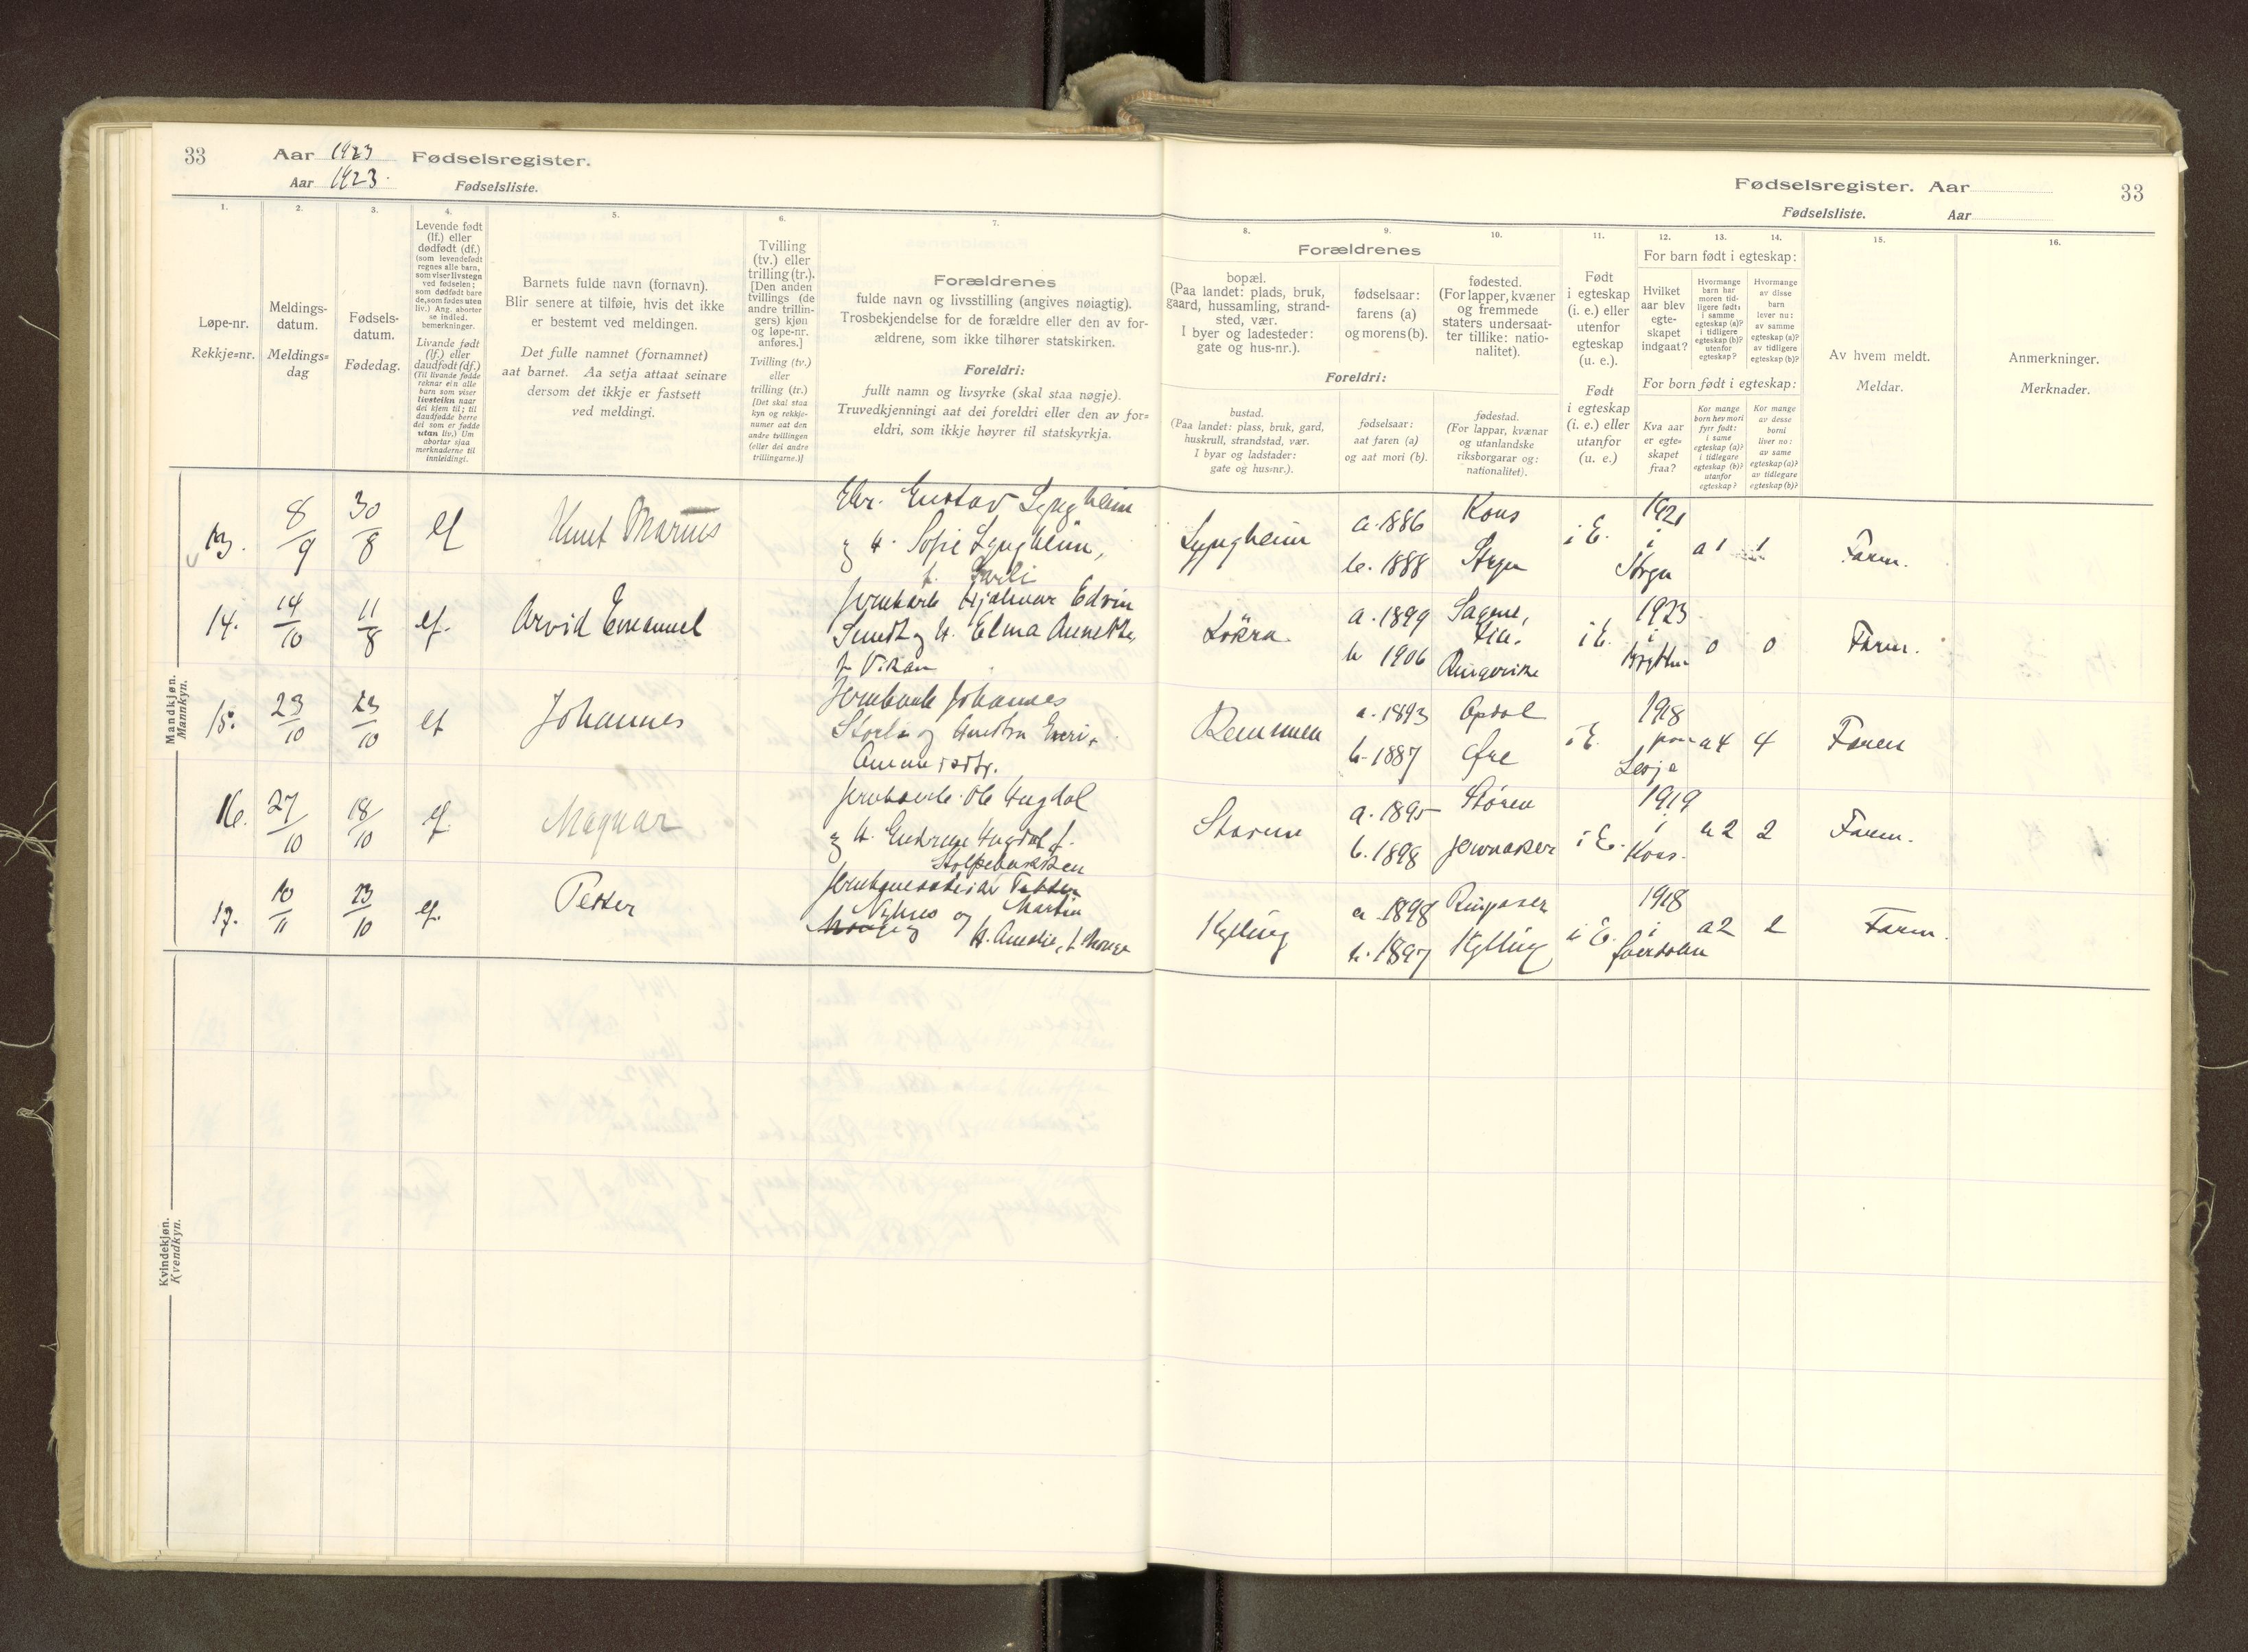 33 Aar 1923 Fødselsregister.
Aar 1923. Fødselsliste.
Fødselsregister. Aar 33
Fødselsliste. Aar
1. 2. 3. 4. 5. 6. 7. 8. 9. 10. 11. 12. 13. 14. 15. 16.
Løpe-nr.
Rekkje=nr.
Meldings-
datum.
Meldings=
dag
Fødsels-
datum.
Fødedag.
Levende født
(lf.) eller
dødfødt (df.)
(som levendefødt
regnes alle barn,
som viser livstegn
ved fødselen;
som dødfødt bare
de, som fødes uten
liv.) Ang. aborter
se indled.
bemerkninger.
Livande født
(lf.) eller
daudfødt (df.)
(Til livande fødde
reknar ein alle
barn som viser
livsteikn naar
dei kjem til; til
daudfødde berre
dei som er fødde
utan liv.) Um
abortar sjaa
merknaderne til
innleidingi.
Barnets fulde navn (fornavn).
Blir senere at tilføie, hvis det ikke
er bestemt ved meldingen.
Det fulle namnet (fornamnet)
aat barnet. Aa setja attaat seinare
dersom det ikkje er fastsett
ved meldingi.
Tvilling
(tv.) eller
trilling (tr.).
[Den anden
tvillings (de
andre trillin-
gers) kjøn
og løpe-nr.
anføres.]
Tvilling (tv.)
eller
trilling (tr.)
[Det skal staa
kyn og rekkje-
numer aat den
andre tvillingen
(eller dei andre
trillingarne.)]
Forældrenes
fulde navn og livsstilling (angives nøiagtig).
Trosbekjendelse for de forældre eller den av for-
ældrene, som ikke tilhører statskirken.
Foreldri:
fullt namn og livsyrke (skal staa nøgje).
Truvedkjenningi aat dei foreldri eller den av for=
eldri, som ikkje høyrer til statskyrkja.
Forældrenes
bopæl.
(Paa landet: plads, bruk,
gaard, hussamling, strand-
sted, vær.
I byer og ladesteder:
gate og hus-nr.).
fødselsaar:
farens (a)
og morens (b).
fødested.
(For lapper, kvæner
og fremmede
staters undersaat-
ter tillike: natio-
nalitet).
Foreldri:
bustad.
(Paa landet: plass, bruk, gard,
huskrull, strandstad, vær.
I byar og ladstader:
gate og hus=nr.).
fødselsaar:
aat faren (a)
og aat mori (b).
fødestad.
(For lappar, kvænar
og utanlandske
riksborgarar og:
nationalitet).
Født
i egteskap
(i. e.) eller
utenfor
egteskap
(u. e.).
Født
i egteskap
(i. e.) eller
utanfor
(u. e.)
For barn født i egteskap:
Hvilket
aar blev
egte-
skapet
indgaat?
Hvormange
barn har
moren tid-
ligere født:
i samme
egteskap (a)?
i tidligere
egteskap (b)?
utenfor
egteskap?
Hvormange
av disse
barn
lever nu:
av samme
egteskap (a)?
av tidligere
egteskap (b)?
For born født i egteskap:
Kva aar
er egte=
skapet
fraa?
Kor mange
born hev mori
fyrr født:
i same
egteskap (a)?
i tidlegare
egteskap (b)?
utanfor
egteskap?
Kor mange
av desse
borni
liver no:
av same
egteskap (a)?
av tidlegare
egteskap (b)?
Av hvem meldt.
Meldar.
Anmerkninger.
Merknader.
Mandkjøn.
Mannkyn.
13. 8/9 30/8 lf Knut Marius
Chr. Gustav Lyngheim
og H. Sofie Lyngheim,
Lyngheim a. 1886 Kors i E. 1921 a 1 1 Faren.
b. 1888
14. 14/10 11/8 lf. Arvid Emanuel
Hjalmar Edvin
og H. Elma Annette,
f. Vikan
a. 1899 i E. 1923 0 0 Faren.
b 1906
15. 23/10 23/10 lf Johannes
Johannes
Remmen a. 1893 Opdal i E. 1918 a 4 4 Faren
b. 1887 Øre Lesja
16. 27/10 18/10 lf. Magnar
Ole Hugdal
og H. Hugdal f.
a. 1895 Støren i E. 1919 a 2 2 Faren.
b. 1898 Jevnaker i Kors.
17. 10/11 23/10 lf. Petter
Martin
og H. Amalie,
Kylling a. 1898 Ringsaker i E. 1918 a 2 2 Faren.
b. 1897 Kylling i
Kvindekjøn.
Kvendkyn.